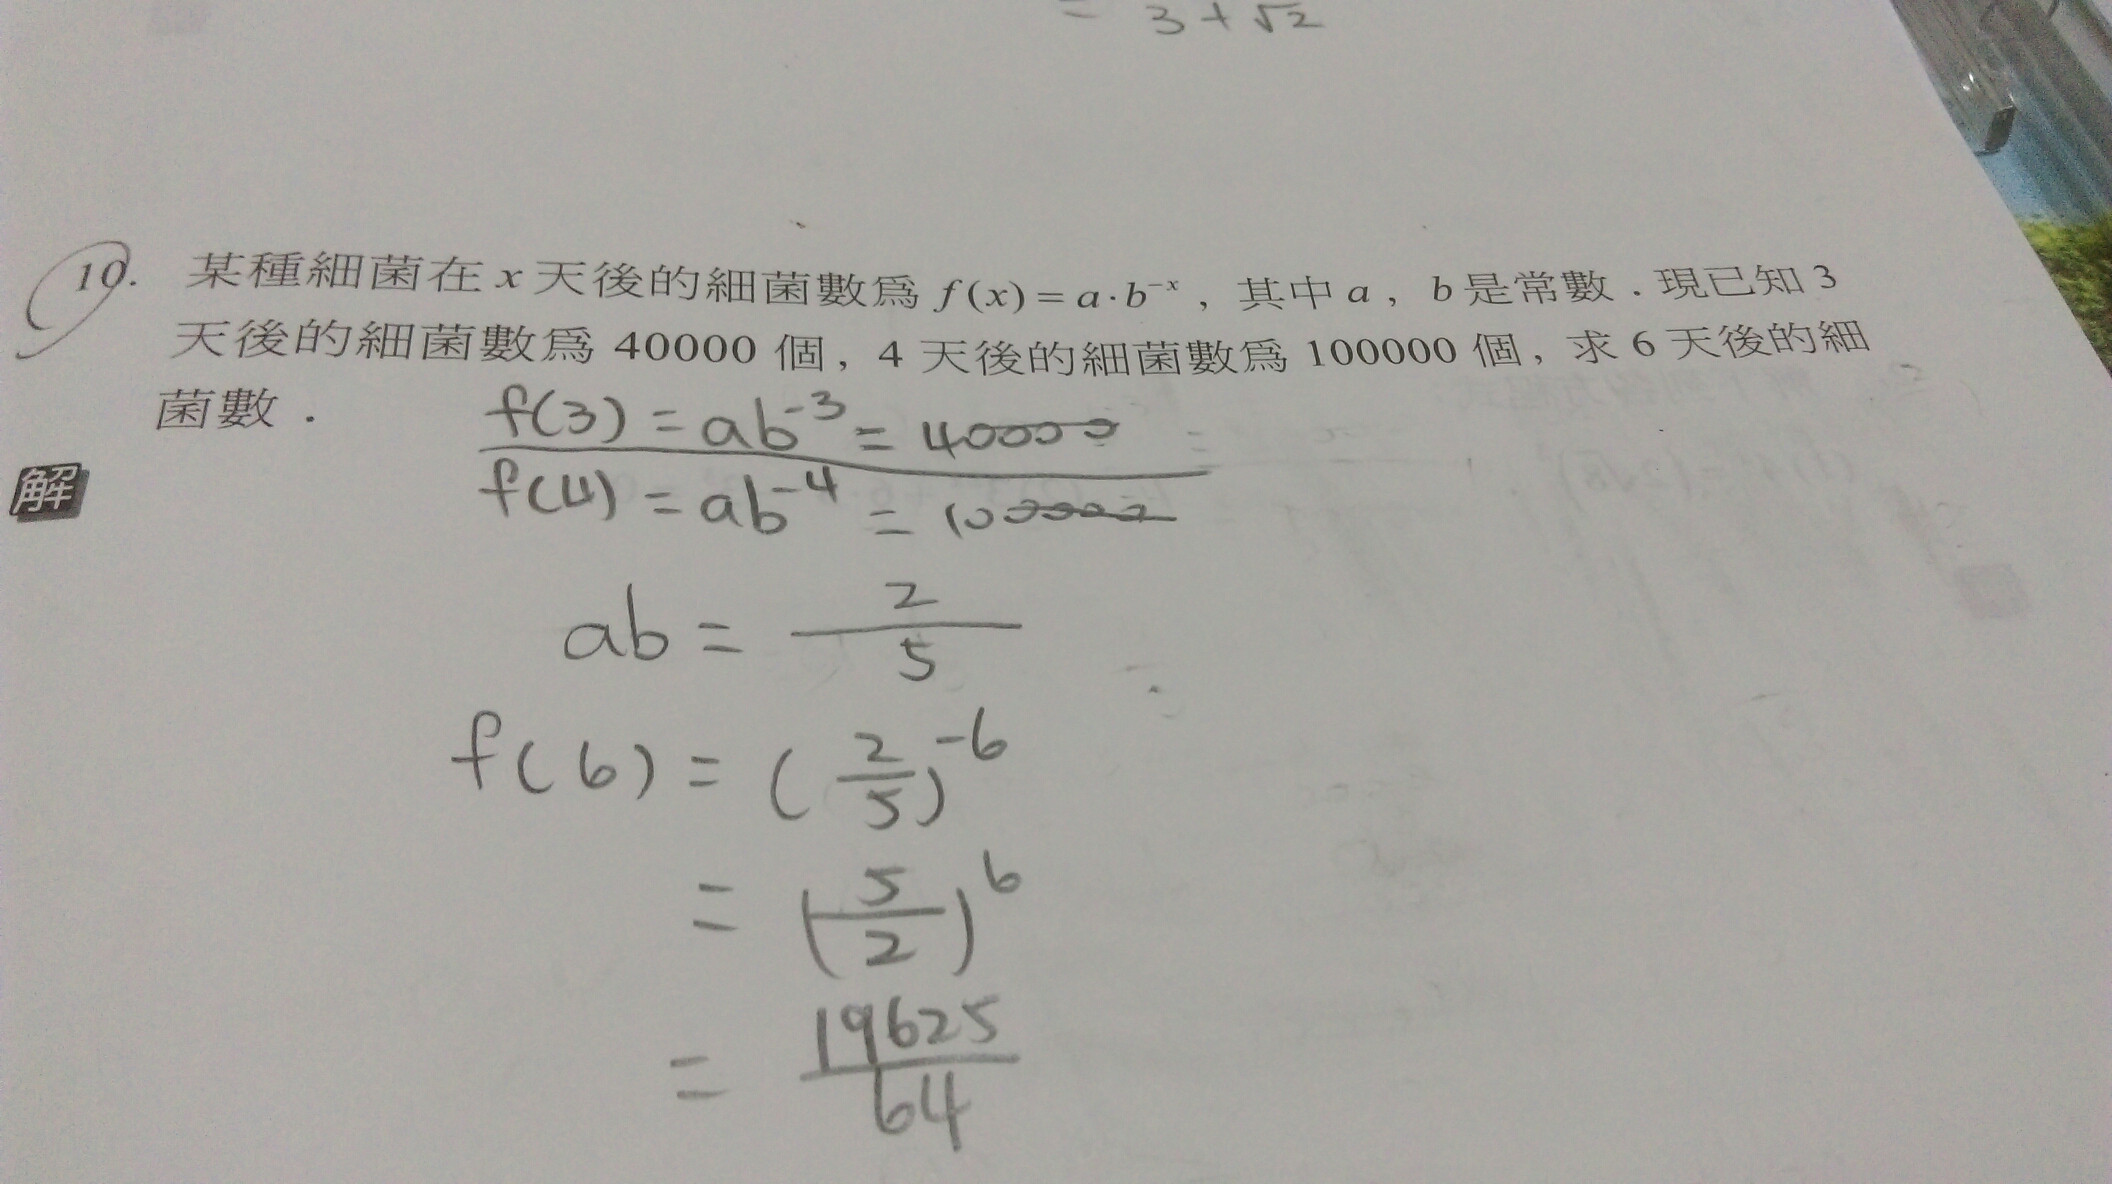 = 3 + √2
10. 某種細菌在 x 天後的細菌數為 f(x) = a·b⁻ˣ, 其中 a, b 是常數. 現已知 3
天後的細菌數為 40000 個, 4 天後的細菌數為 100000 個, 求 6 天後的細
菌數.
解
f(3) = ab⁻³ = 40000
f(4) = ab⁻⁴ = 100000
ab = 2/5
f(6) = (2/5)⁻⁶
= (5/2)⁶
= 19625/64